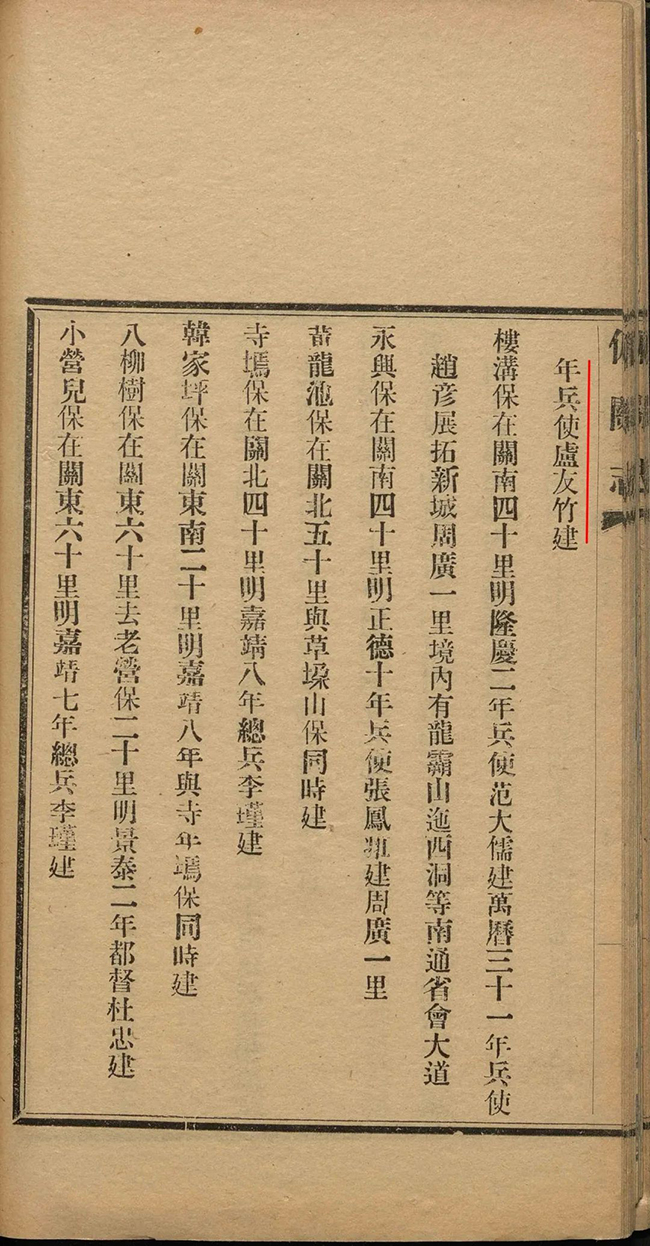 偏關志
年兵使盧友竹建
樓溝保在關南四十里明隆慶二年兵使范大儒建萬曆三十一年兵使
趙彥展拓新城周廣一里境內有龍霸山迤西洞等南通省會大道
永興保在關南四十里明正德十年兵使張鳳羾建周廣一里
黃龍池保在關北五十里與草垜山保同時建
寺墕保在關北四十里明嘉靖八年總兵李瑾建
韓家坪保在關東南二十里明嘉靖八年與寺年墕保同時建
八柳樹保在關東六十里去老營保二十里明景泰二年都督杜忠建
小營兒保在關東六十里明嘉靖七年總兵李瑾建